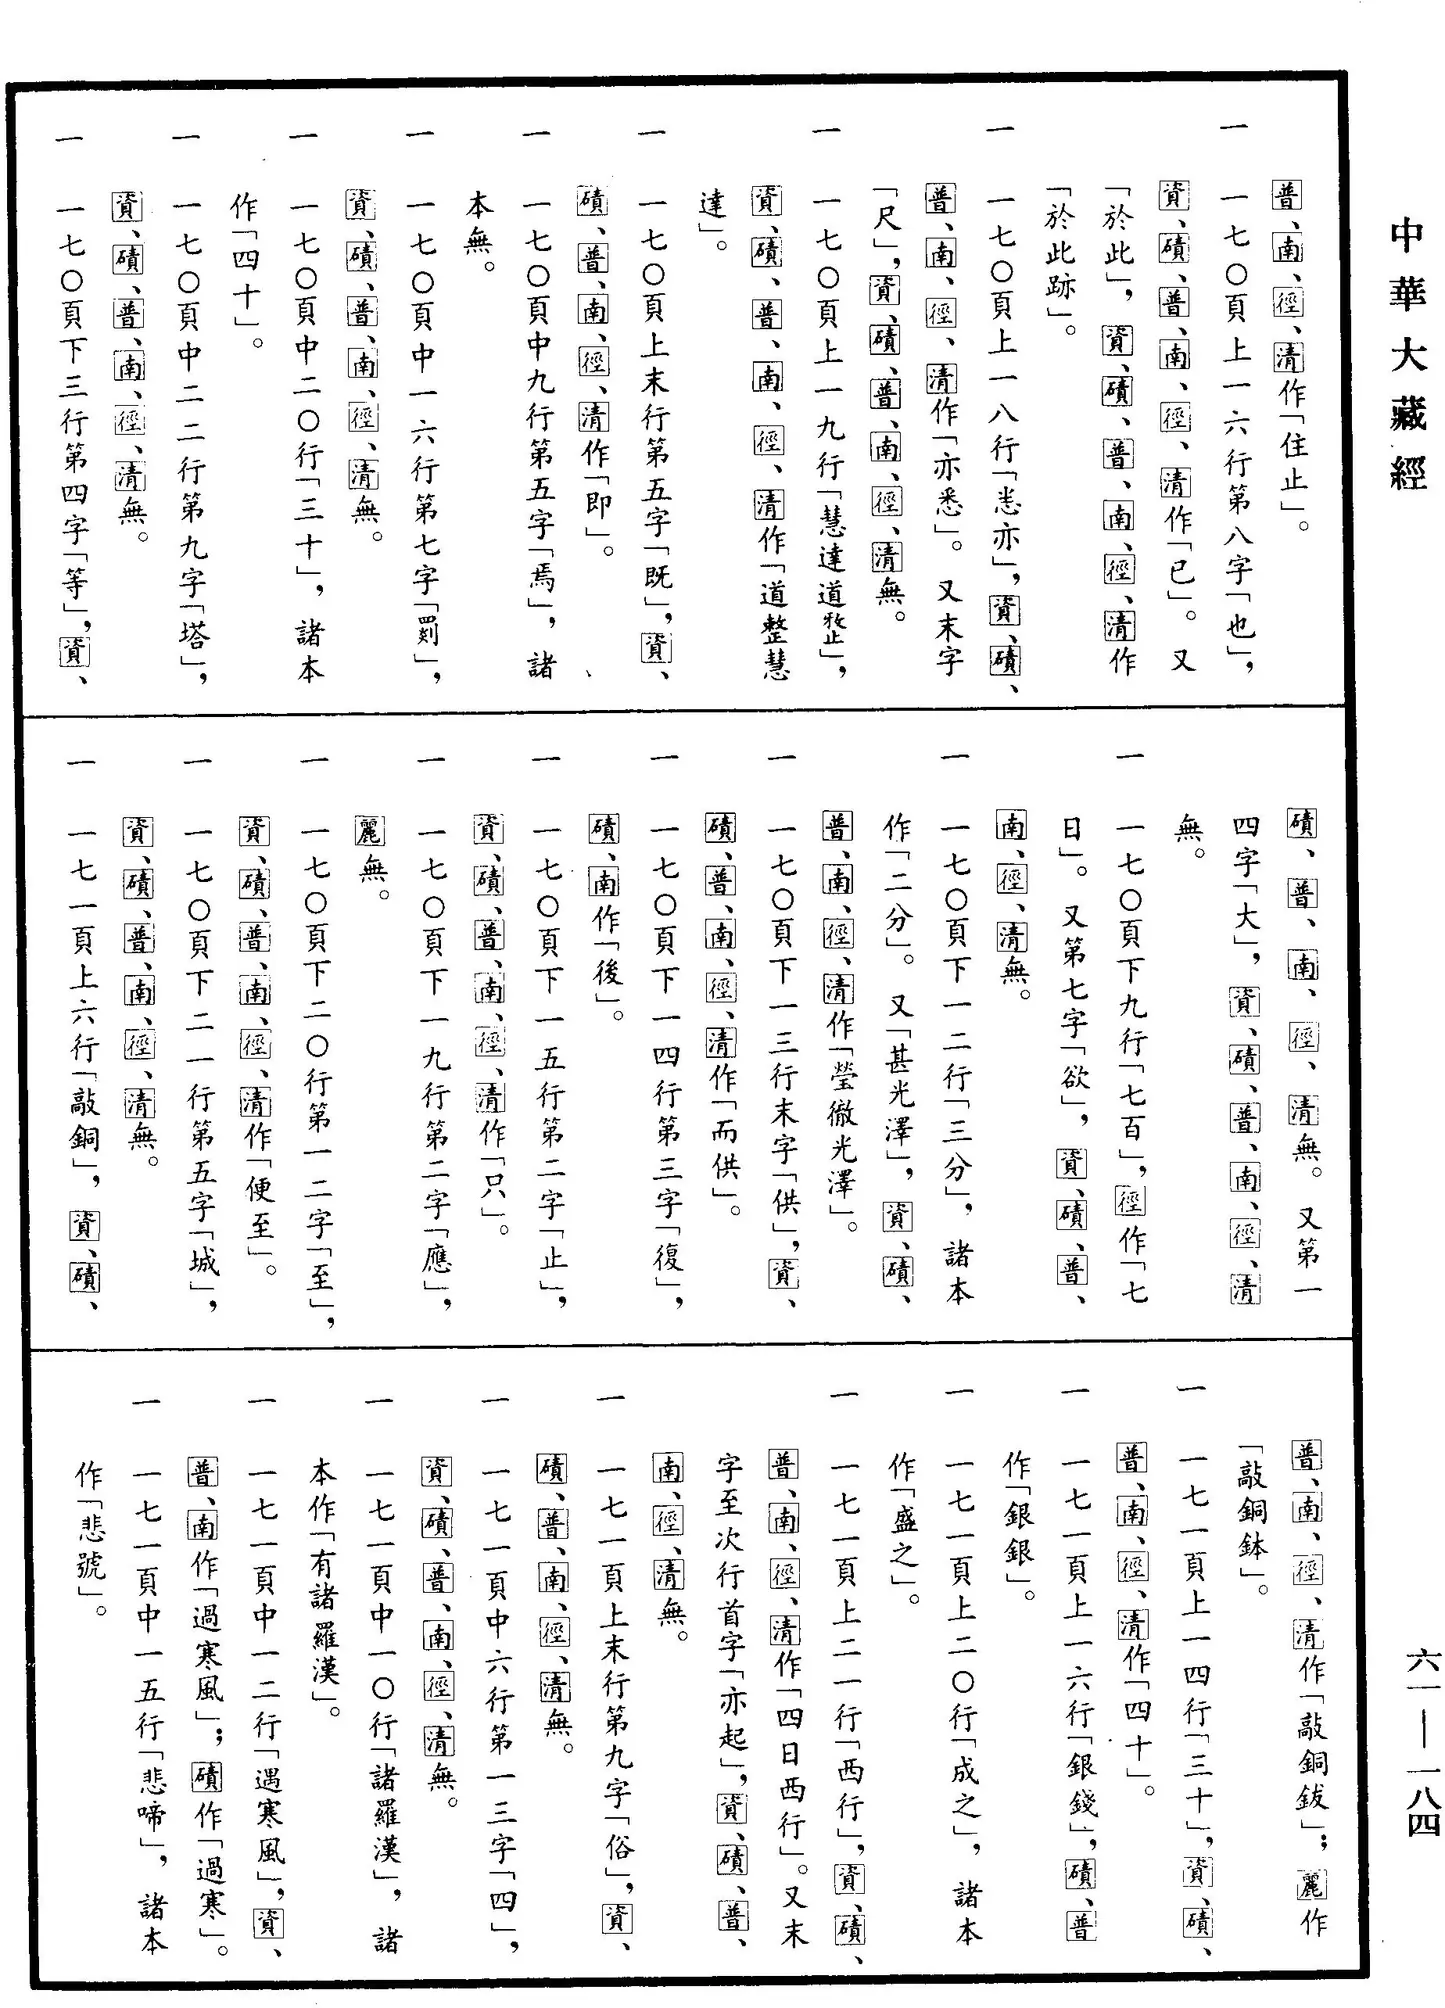 中華大藏經
六一——一八四
普、南、徑、清作「住止」。
一 一七〇頁上一六行第八字「也」，
資、磧、普、南、徑、清作「已」。又
「於此」，資、磧、普、南、徑、清作
「於此跡」。
一 一七〇頁上一八行「恙亦」，資、磧、
普、南、徑、清作「亦悉」。又末字
「尺」，資、磧、普、南、徑、清無。
一 一七〇頁上一九行「慧達道」，
資、磧、普、南、徑、清作「道整慧
達」。
一 一七〇頁上末行第五字「既」，資、
磧、普、南、徑、清作「即」。
一 一七〇頁中九行第五字「焉」，諸
本無。
一 一七〇頁中一六行第七字「罰」，
資、磧、普、南、徑、清無。
一 一七〇頁中二〇行「三十」，諸本
作「四十」。
一 一七〇頁中二二行第九字「塔」，
資、磧、普、南、徑、清無。
一 一七〇頁下三行第四字「等」，資、
磧、普、南、徑、清無。又第一
四字「大」，資、磧、普、南、徑、清
無。
一 一七〇頁下九行「七百」，徑作「七
日」。又第七字「欲」，資、磧、普、
南、徑、清無。
一 一七〇頁下一二行「三分」，諸本
作「二分」。又「甚光澤」，資、磧、
普、南、徑、清作「瑩徹光澤」。
一 一七〇頁下一三行末字「供」，資、
磧、普、南、徑、清作「而供」。
一 一七〇頁下一四行第三字「復」，
磧、南作「後」。
一 一七〇頁下一五行第二字「止」，
資、磧、普、南、徑、清作「只」。
一 一七〇頁下一九行第二字「應」，
麗無。
一 一七〇頁下二〇行第一二字「至」，
資、磧、普、南、徑、清作「便至」。
一 一七〇頁下二一行第五字「城」，
資、磧、普、南、徑、清無。
一 一七一頁上六行「敲銅」，資、磧、
普、南、徑、清作「敲銅鈸」；麗作
「敲銅鉢」。
一 一七一頁上一四行「三十」，資、磧、
普、南、徑、清作「四十」。
一 一七一頁上一六行「銀錢」，磧、普
作「銀銀」。
一 一七一頁上二〇行「成之」，諸本
作「盛之」。
一 一七一頁上二一行「西行」，資、磧、
普、南、徑、清作「四日西行」。又末
字至次行首字「亦起」，資、磧、普、
南、徑、清無。
一 一七一頁上末行第九字「俗」，資、
磧、普、南、徑、清無。
一 一七一頁中六行第一三字「四」，
資、磧、普、南、徑、清無。
一 一七一頁中一〇行「諸羅漢」，諸
本作「有諸羅漢」。
一 一七一頁中一二行「遇寒風」，資、
普、南作「過寒風」；磧作「過寒」。
一 一七一頁中一五行「悲啼」，諸本
作「悲號」。